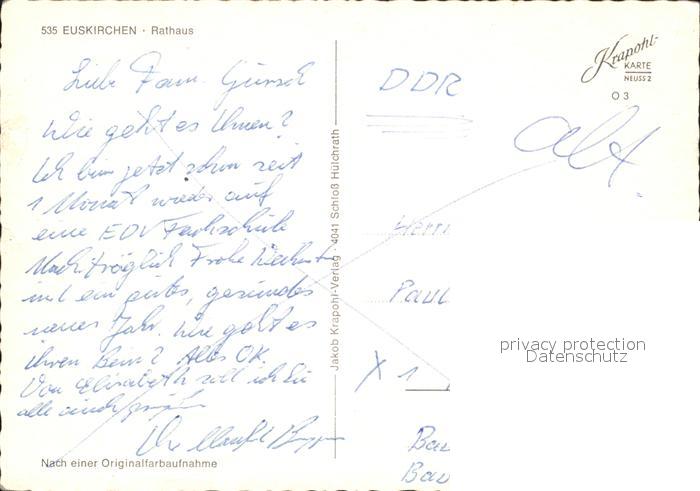 535 EUSKIRCHEN · Rathaus
Liebe Fam.
Wie geht es Ihnen?
Ich bin jetzt schon seit
1 Monat wieder auf
eine EDV Fachschule
Nachträglich Frohe
und ein gutes, gesundes
neues Jahr. Wie geht es
Ihren Bein? Alles OK.
Von Elisabeth soll ich Sie
alle
Ihr
Nach einer Originalfarbaufnahme
Jakob Krapohl-Verlag 4041 Schloß Hülchrath
Krapohl-
KARTE
NEUSS 2
O 3
DDR
alt
Herrn
Paul
X 1
Bau
Bau
privacy protection
Datenschutz